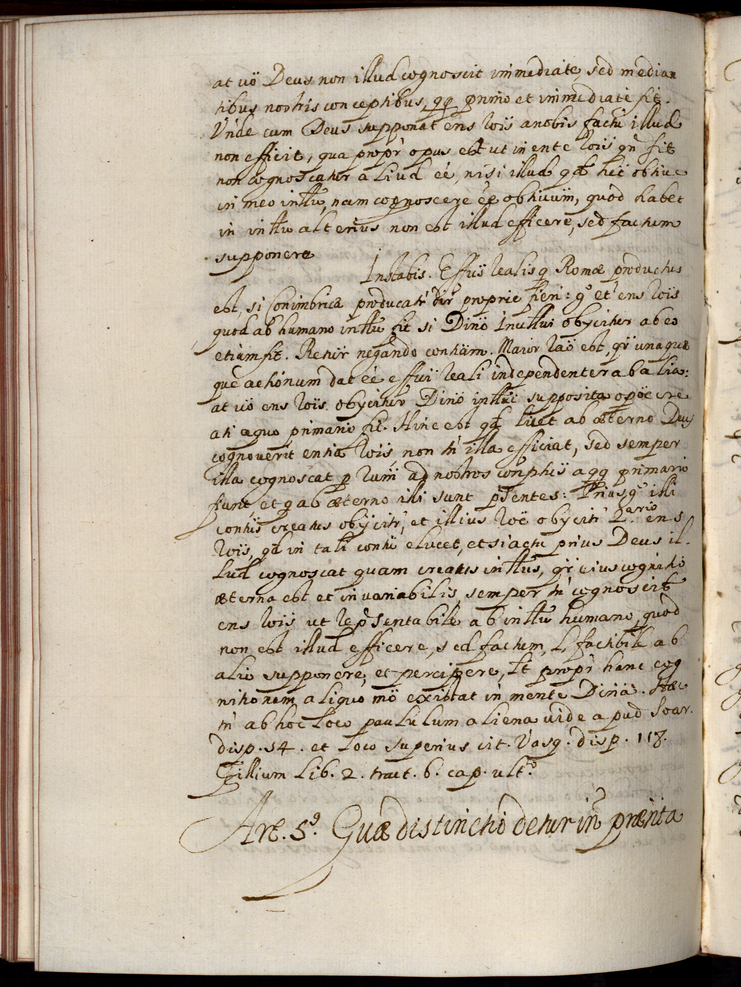 at uö Deus non illud cognoscit immediate, sed median
tibus nostris conceptibus, qq primo et immediate fit.
Unde cum Deus supponat ens rois a nobis factũ illud
non efficit, qua propr̃ opus est ut in ente rois qñ fit
non cognoscatur aliud eẽ, nisi illud qđ het obtiue
in meo inttu, nam cognoscere eẽ obtiuum, quod habet
in inttu alterius non est illud efficere, sed factum
supponere
Instabis. Effũs realis q Romæ productus
est, si Conimbricæ producatr̃ dr̃ proprie fieri: gº et ens rois
quod ab humano inttu fit si Dinö Inttui obijcitur ab eo
etiam fit. Retur̃ negando contiam. Maior raö est, qr̃ unaquæ
que actionum dat eé effũi reali independenter ab alia:
at uö ens rois obijcitur Dinö inttui supposita opöe cre
ati a quo primario fit. Hinc est qđ licet ab æterno Deus
cognouerit entia rois non tñ illa efficiat, sed semper
illa cognoscat p rum̃ ad nostros conptus a qq primario
fiunt et q ab æterno illi sunt pñtes: Prius q illi
contus creatus obijcitr̃, et illius roe obijcitr̃ 2ario ens
rois, qđ in tali contu elucet, et si actu prius Deus il-
lud cognoscat quam creatus inttus, qr̃ eius cognitio
æterna est et inuariabilis semper tñ cognoscit
ens rois ut repsentabile ab inttu humano, quod
non est illud efficere, sed factum, L factibile ab
alio supponere, et percipere, Et propr̃ hanc cog
nitionem aliquo mö existat in mente Dinä. Hæc
tñ ab hoc loco paululum aliena uide apud Soar.
disp. 54. et loco superius cit. Vasq. disp. 118.
Gillium Lib. 2. tract. 6. cap. ultº
Art. 5º. Quæ distinctio detur in prænta